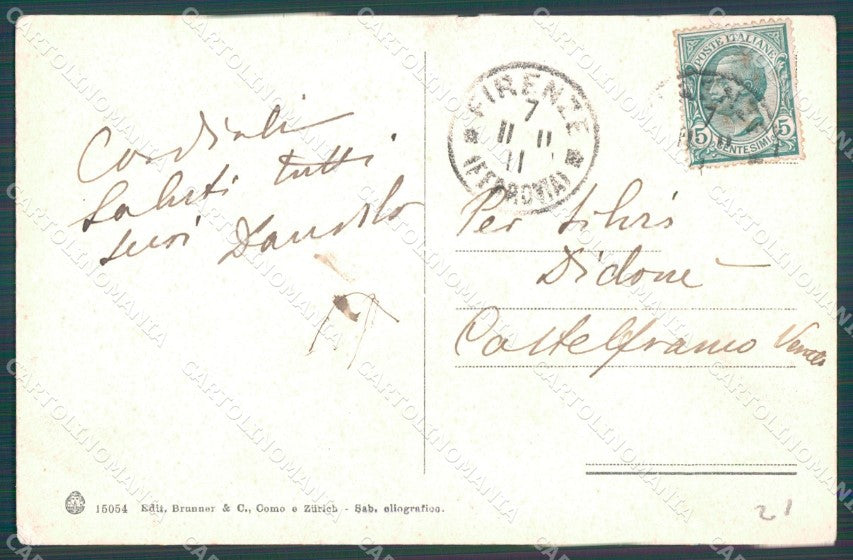 Cordiali
Saluti tutti
suoi Dandolo
FIRENZE
7
11 11
11
(FERROVIA)
POSTE ITALIANE
5 5
CENTESIMI
Per Silvio
Didoné
Castelfranco Veneto
15054 Edit. Brunner & C., Como e Zürich - Sab. eliografico.
21
CARTOLINOMANIA